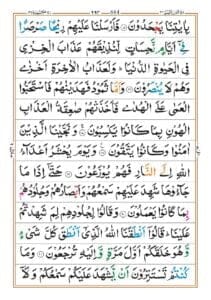 بِاٰيٰتِنَا يَجْحَدُوْنَ ۝ فَاَرْسَلْنَا عَلَيْهِمْ رِيْحًا صَرْصَرًا
فِيْٓ اَيَّامٍ نَّحِسَاتٍ لِّنُذِيْقَهُمْ عَذَابَ الْخِزْيِ
فِي الْحَيٰوةِ الدُّنْيَا ؕ وَلَعَذَابُ الْاٰخِرَةِ اَخْزٰى
وَهُمْ لَا يُنْصَرُوْنَ ۝ وَاَمَّا ثَمُوْدُ فَهَدَيْنٰهُمْ فَاسْتَحَبُّوا
الْعَمٰى عَلَى الْهُدٰى فَاَخَذَتْهُمْ صٰعِقَةُ الْعَذَابِ
الْهُوْنِ بِمَا كَانُوْا يَكْسِبُوْنَ ۝ وَنَجَّيْنَا الَّذِيْنَ
اٰمَنُوْا وَكَانُوْا يَتَّقُوْنَ ۝ وَيَوْمَ يُحْشَرُ اَعْدَآءُ
اللّٰهِ اِلَى النَّارِ فَهُمْ يُوْزَعُوْنَ ۝ حَتّٰٓى اِذَا مَا
جَآءُوْهَا شَهِدَ عَلَيْهِمْ سَمْعُهُمْ وَاَبْصَارُهُمْ وَجُلُوْدُهُمْ
بِمَا كَانُوْا يَعْمَلُوْنَ ۝ وَقَالُوْا لِجُلُوْدِهِمْ لِمَ شَهِدْتُّمْ
عَلَيْنَا ؕ قَالُوْٓا اَنْطَقَنَا اللّٰهُ الَّذِيْٓ اَنْطَقَ كُلَّ شَيْءٍ
وَّهُوَ خَلَقَكُمْ اَوَّلَ مَرَّةٍ وَّاِلَيْهِ تُرْجَعُوْنَ ۝ وَمَا
كُنْتُمْ تَسْتَتِرُوْنَ اَنْ يَّشْهَدَ عَلَيْكُمْ سَمْعُكُمْ وَلَآ